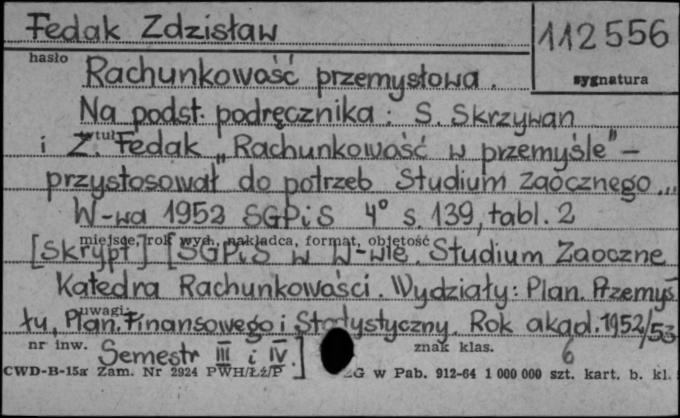 Fedak Zdzisław
112556
hasło
sygnatura
Rachunkowość przemysłowa.
Na podst. podręcznika: S. Skrzywan
tuł
i Z. Fedak „Rachunkowość w przemyśle" –
przystosował do potrzeb Studium Zaocznego...
W-wa 1952 SGPiS 4° s. 139, tabl. 2
miejsce, rok wyd., nakładca, format, objętość
[Skrypt] [SGPiS w W-wie. Studium Zaoczne
Katedra Rachunkowości. Wydziały: Plan. Przemys
uwagi
łu, Plan. Finansowego i Statystyczny. Rok akad. 1952/53
nr inw.
znak klas.
Semestr III i IV.]
6
CWD-B-15a Zam. Nr 2924 PWH/Łź/P
ZG w Pab. 912-64 1 000 000 szt. kart. b. kl.